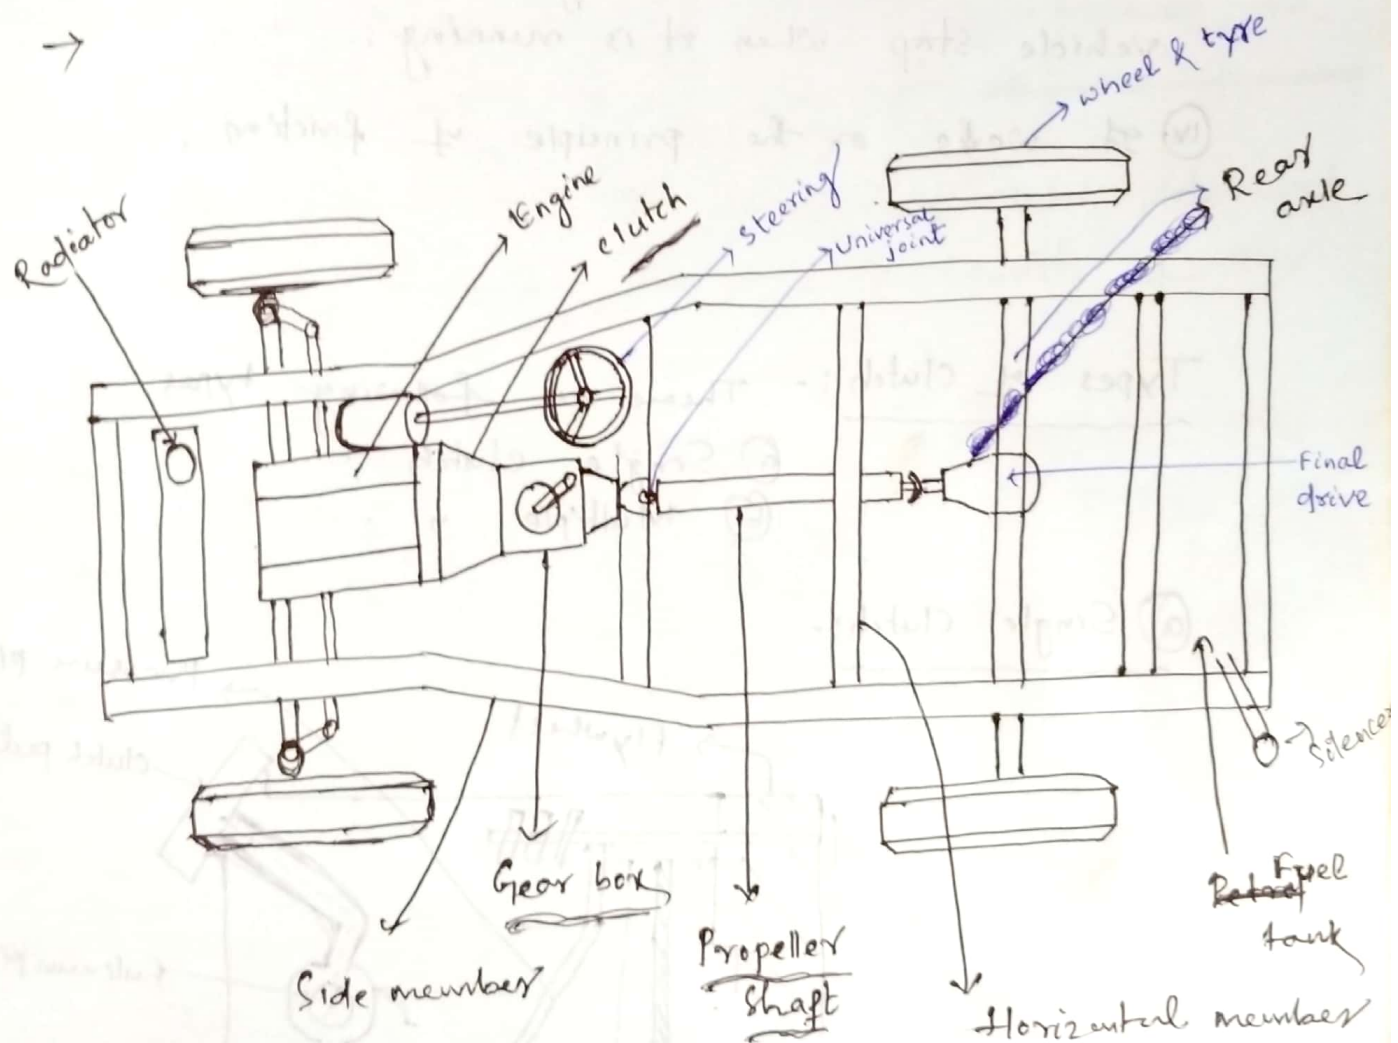 wheel & tyre
Rear
axle
Engine
clutch
steering
Universal
joint
Radiator
Final
drive
Silencer
Fuel
tank
Gear box
Propeller
shaft
Side member
Horizontal member